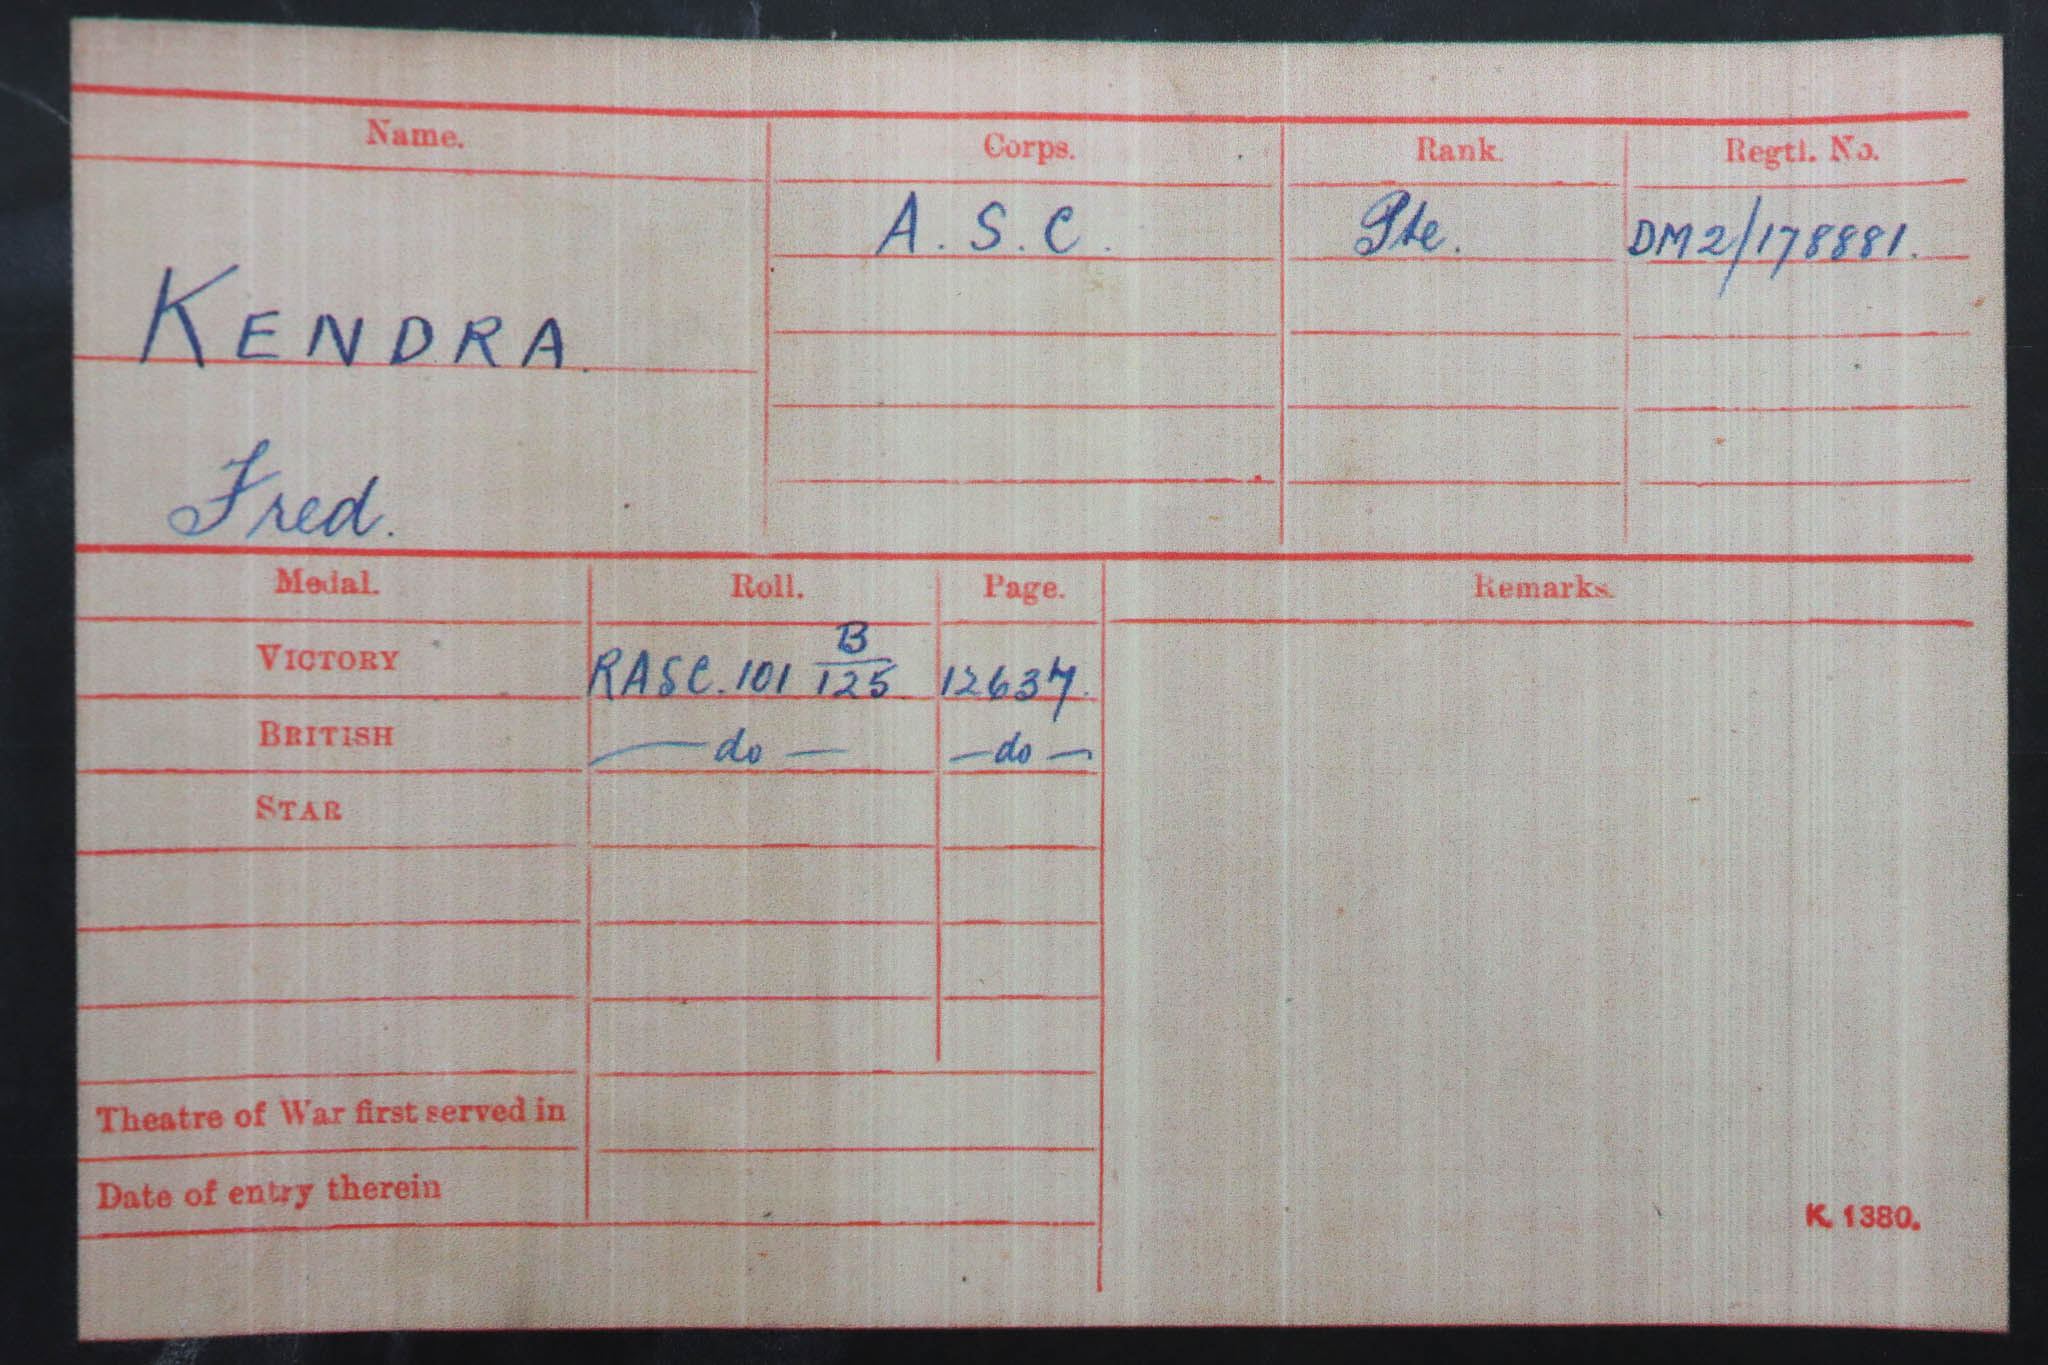 Name. Corps. Rank. Regtl. No.
A. S. C. Pte. DM2/178881.
KENDRA.
Fred.
Medal. Roll. Page. Remarks.
VICTORY RASC. 101 B/125. 12637.
BRITISH — do — — do —
STAR
Theatre of War first served in
Date of entry therein
K. 1380.